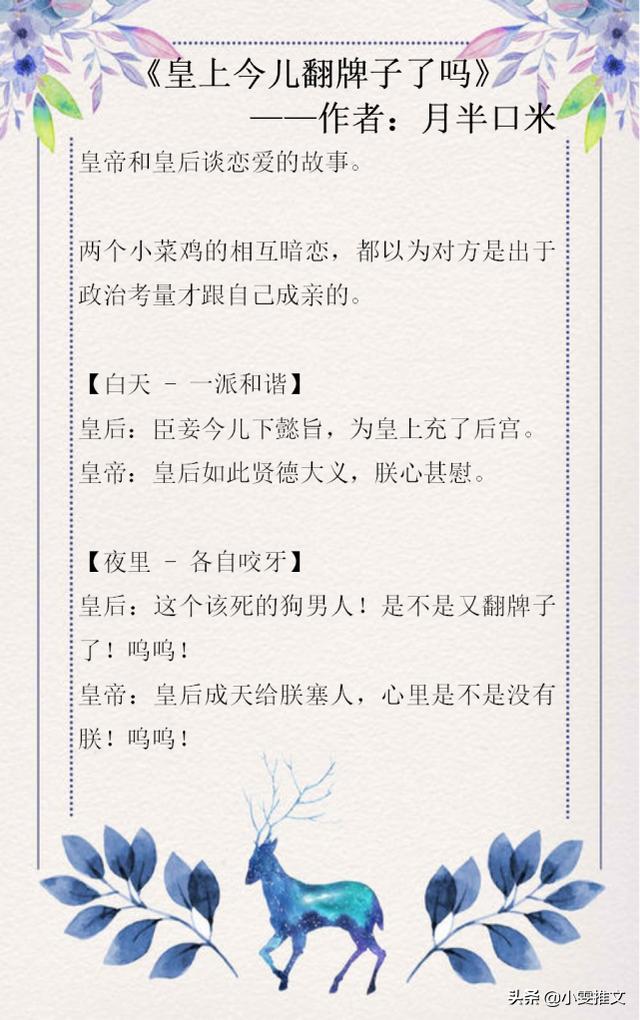 《皇上今儿翻牌子了吗》
——作者：月半口米
皇帝和皇后谈恋爱的故事。
两个小菜鸡的相互暗恋，都以为对方是出于
政治考量才跟自己成亲的。
【白天 - 一派和谐】
皇后：臣妾今儿下懿旨，为皇上充了后宫。
皇帝：皇后如此贤德大义，朕心甚慰。
【夜里 - 各自咬牙】
皇后：这个该死的狗男人！是不是又翻牌子
了！呜呜！
皇帝：皇后成天给朕塞人，心里是不是没有
朕！呜呜！
头条 @小雯推文